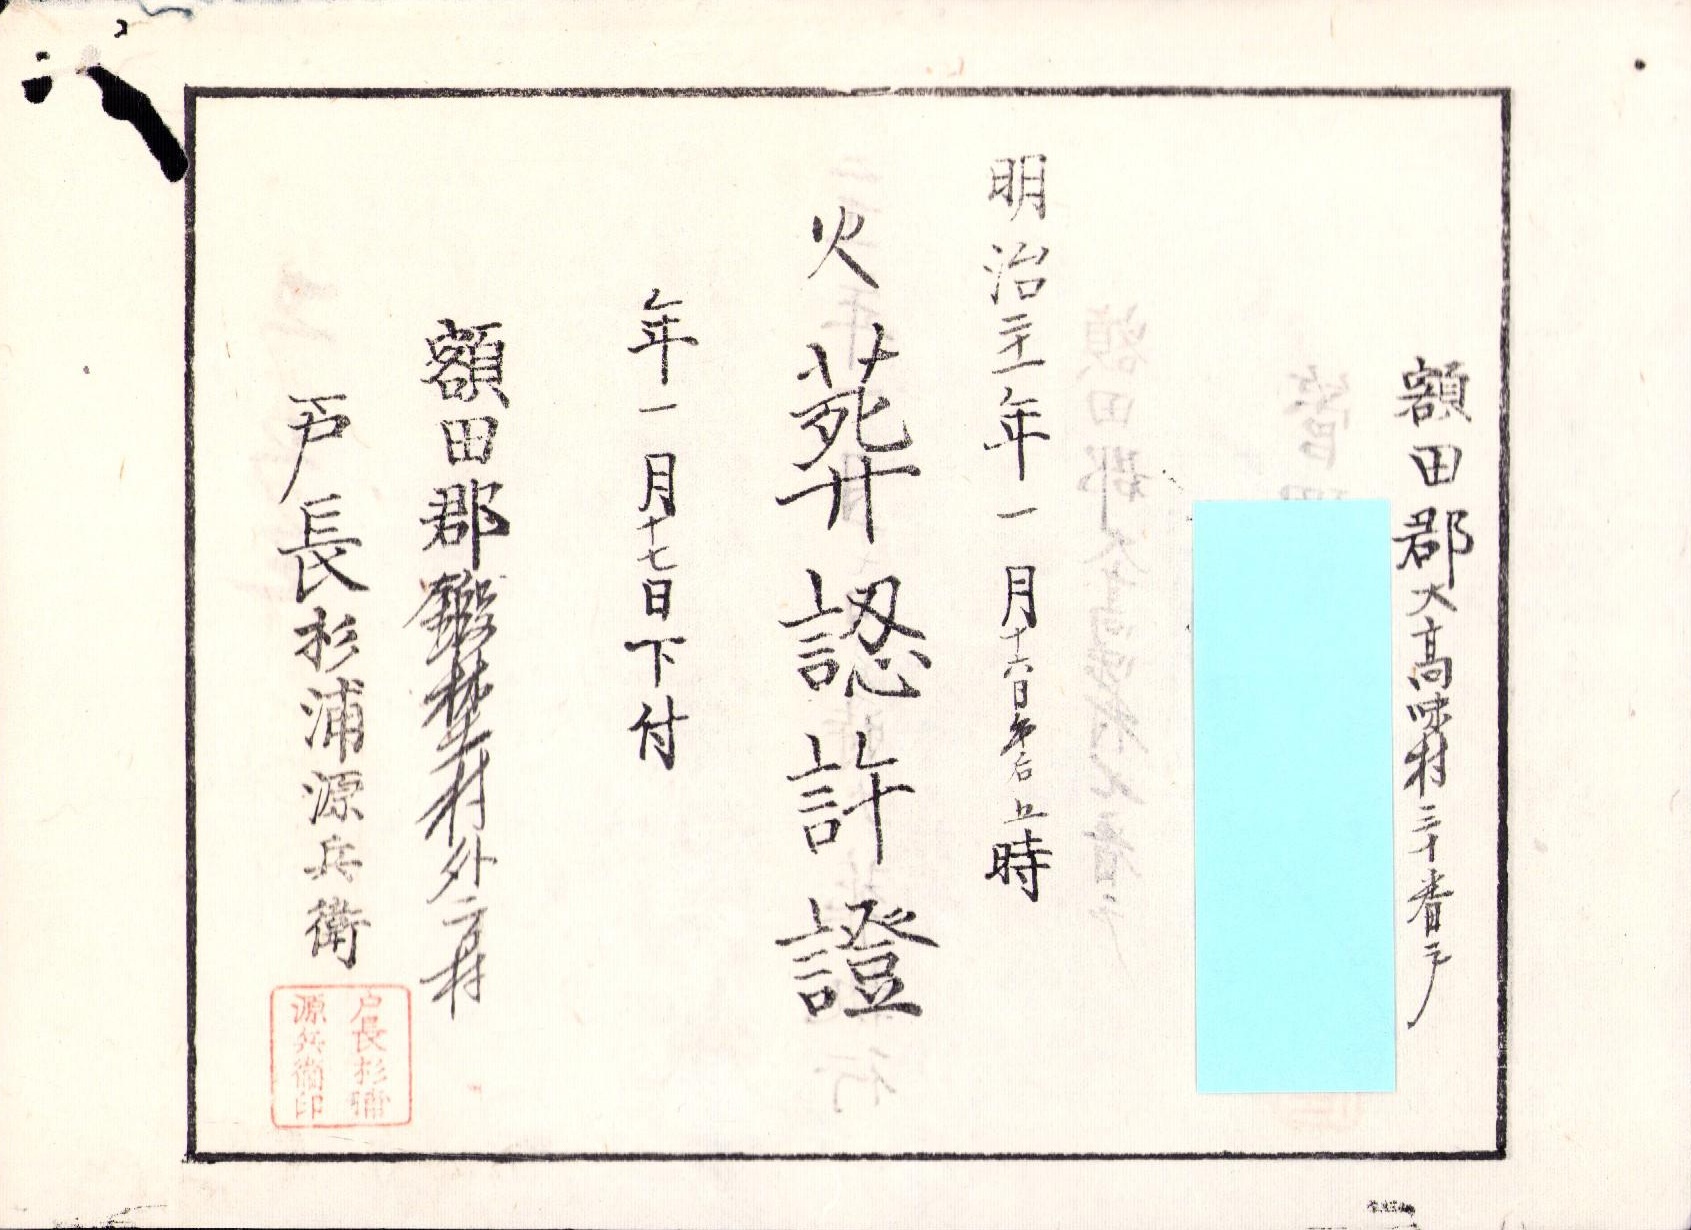 額田郡大高味村三十番戸
明治二十一年一月十六日午后五時
火葬認許證
年一月十七日下付
額田郡鍛埜村外二村
戸長杉浦源兵衛
戸長杉浦
源兵衛印